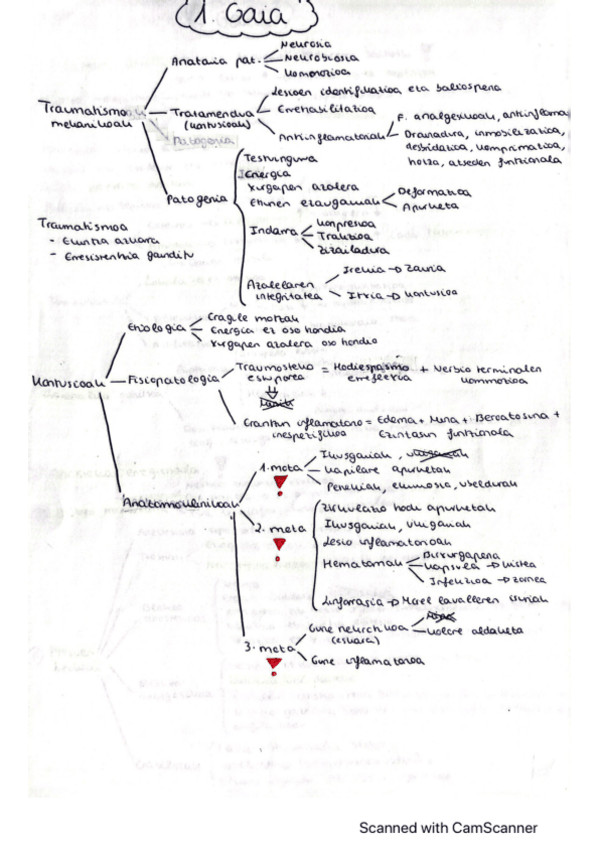 1. Gaia
Anatomia pat.
Neurosia
Neurobiosia
Komozioa
Traumatismo mekanikoak
Tratamendua (kontusioak)
Lesioen identifikazioa eta balioespena
Errehabilitazioa
Antiinflamatorioak
F. analgesikoak, antiinflama
Drenadura, inmobilizazioa,
desbridatioa, konprimatioa,
hotza, atseden funtzionala
Patogenia
Patogenia
Testuingurua
Energia
Xurgapen azalera
Ehunen ezaugarriak
Deformatioa
Apurketa
Indarra
Konpresioa
Trakzioa
Zizailadura
Azalaren integritatea
Irekia → Zauria
Itxia → Kontusioa
Traumatismoa
- Ehuntza azkarra
- Erresistentzia gainditu
Kontusioak
Etiologia
Eragile motzak
Energia ez oso handia
Xurgapen azalera oso handia
Fisiopatologia
Traumosteko estuporea = Hodiespasmo erreflexua + Nerbio terminalen konmozioa
Erantzun inflamatorio inespezifikoa = Edema + Mina + Berotasuna + Ezintasun funtzionala
Anatomoklinikoak
1. mota
Iraungaiak,
Kapilare apurketak
Petekiak, ekimosia, ubeldurak
2. mota
Zirkulazio hodi apurketak
Lesio inflamatorioak
Hematomak
Birxurgapena
Kapsula → Kistea
Infekzioa → Zornea
Linforragia → Morel lavalleren isuriak
3. mota
Gune nekrotikoa (eskara)
Kolore aldaketa
Gune inflamatorioa
Scanned with CamScanner